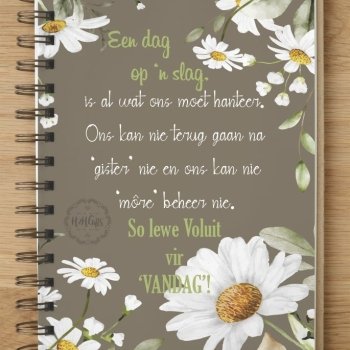 Een dag
op 'n slag.
is al wat ons moet hanteer.
Ons kan nie terug gaan na
'gister' nie en ons kan nie
'môre' beheer nie.
So lewe Voluit
vir
'VANDAG'!